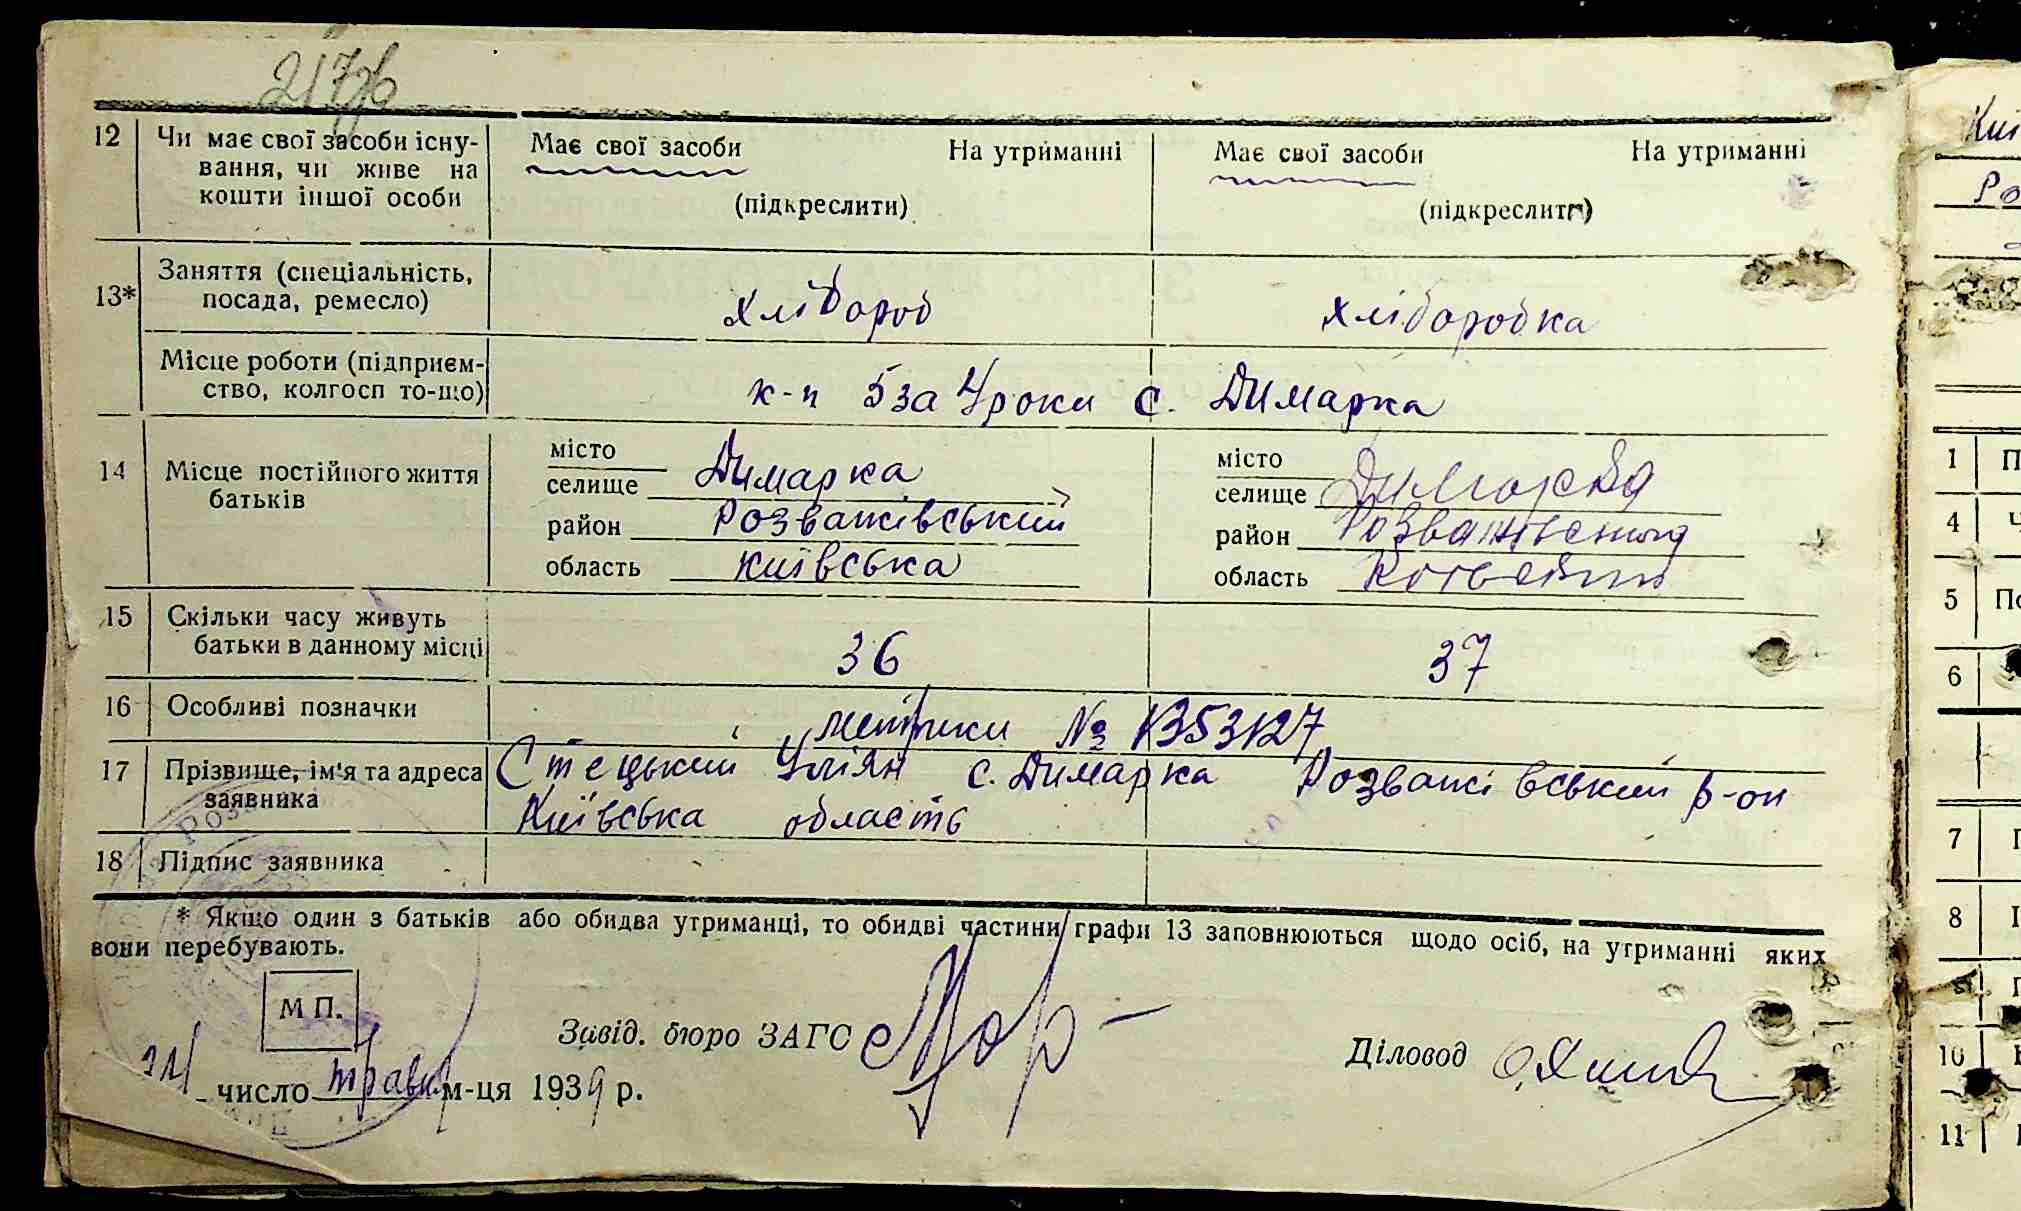 217
12 Чи має свої засоби існу- Має свої засоби На утриманні Має свої засоби На утриманні
вання, чи живе на
кошти іншої особи (підкреслити) (підкреслити)
13* Заняття (спеціальність,
посада, ремесло) хлібороб хліборобка
Місце роботи (підприєм-
ство, колгосп то-що) к-п 5 за 4 роки с. Димарка
14 Місце постійного життя
батьків
місто місто
селище Димарка селище Димарка
район Розважівський район
область київська область
15 Скільки часу живуть
батьки в данному місці 36 37
16 Особливі позначки метрики № 1353127
17 Прізвище, ім'я та адреса Стецький Уліян с. Димарка Розважівський р-он
заявника Київська область
18 Підпис заявника
* Якщо один з батьків або обидва утриманці, то обидві частини графи 13 заповнюються щодо осіб, на утриманні яких
вони перебувають.
М П.
Завід. бюро ЗАГС Діловод
число травня м-ця 1939 р.
Киї
Ро
1 П
4 Ч
5 По
6
7
8 І
9 П
10
11